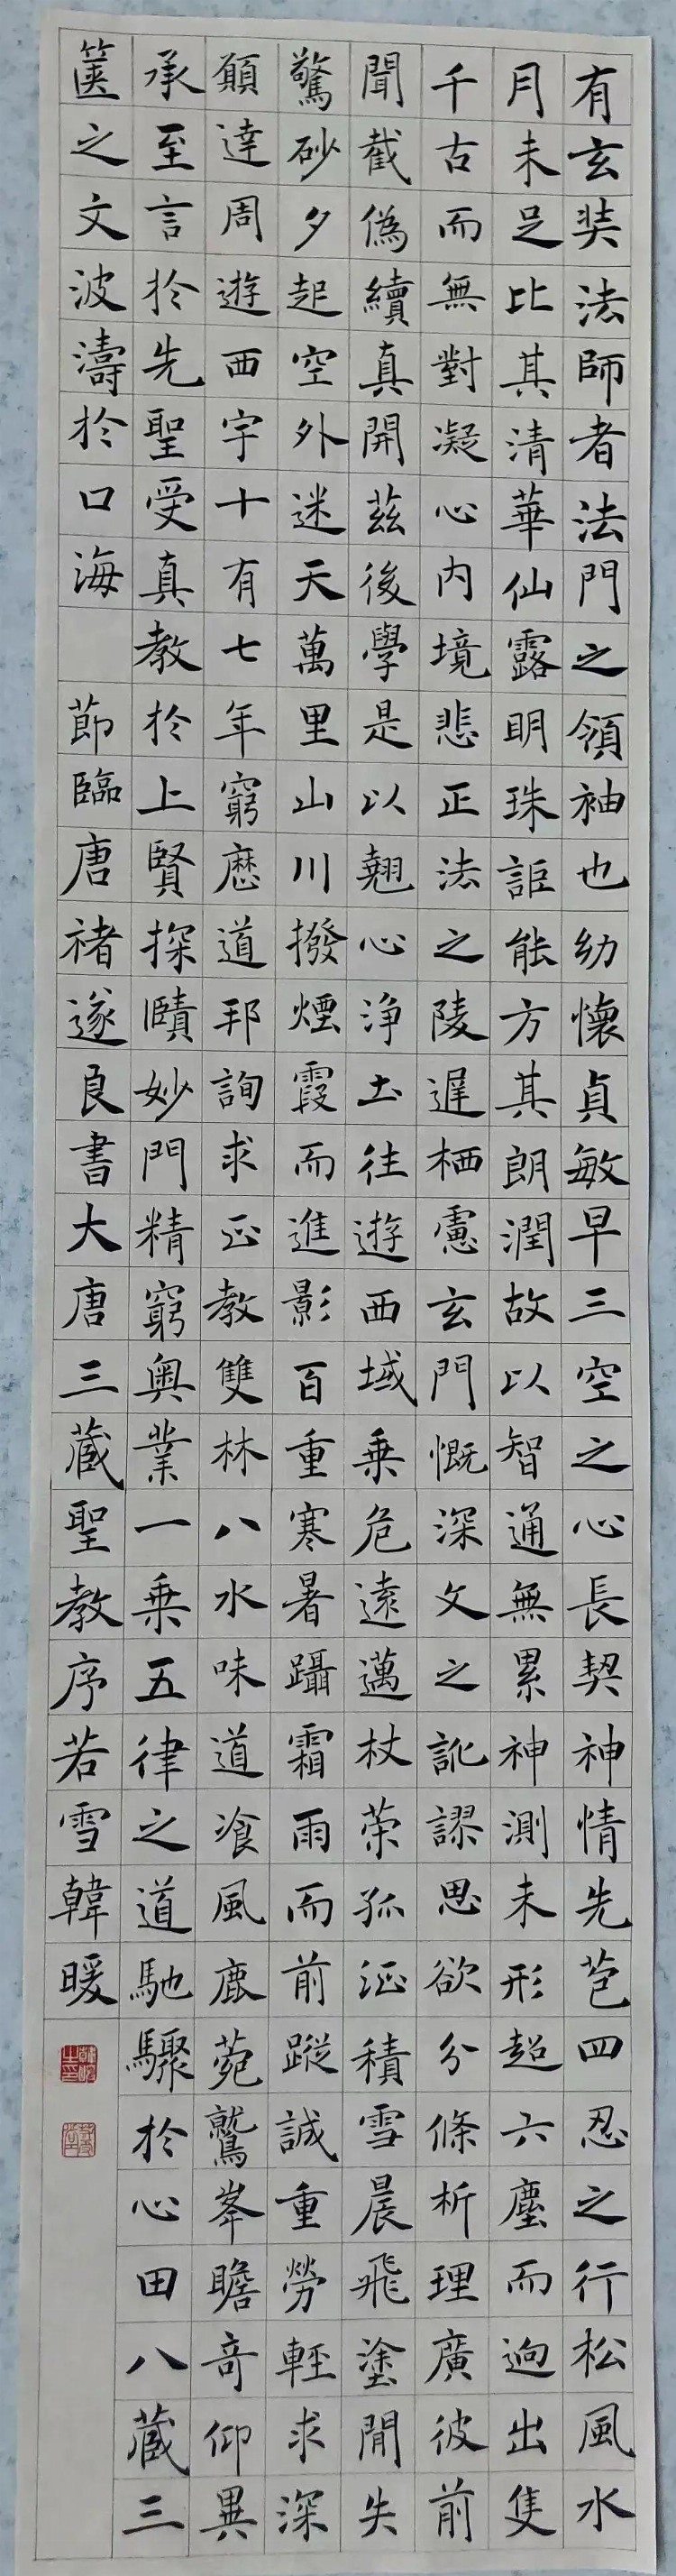 有玄奘法師者法門之領袖也幼懷貞敏早三空之心長契神情先苞四忍之行松風水
月未足比其清華仙露明珠詎能方其朗潤故以智通無累神測未形超六塵而迥出隻
千古而無對凝心內境悲正法之陵遲栖慮玄門慨深文之訛謬思欲分條析理廣彼前
聞截偽續真開茲後學是以翹心淨土往遊西域乗危遠邁杖策孤征積雪晨飛塗閒失
驚砂夕起空外迷天萬里山川撥煙霞而進影百重寒暑躡霜雨而前蹤誠重勞輕求深
願達周遊西宇十有七年窮歷道邦詢求正教雙林八水味道飡風鹿菀鷲峯瞻奇仰異
承至言於先聖受真教於上賢探賾妙門精窮奧業一乗五律之道馳驟於心田八藏三
篋之文波濤於口海 節臨唐褚遂良書大唐三藏聖教序若雪韓暖